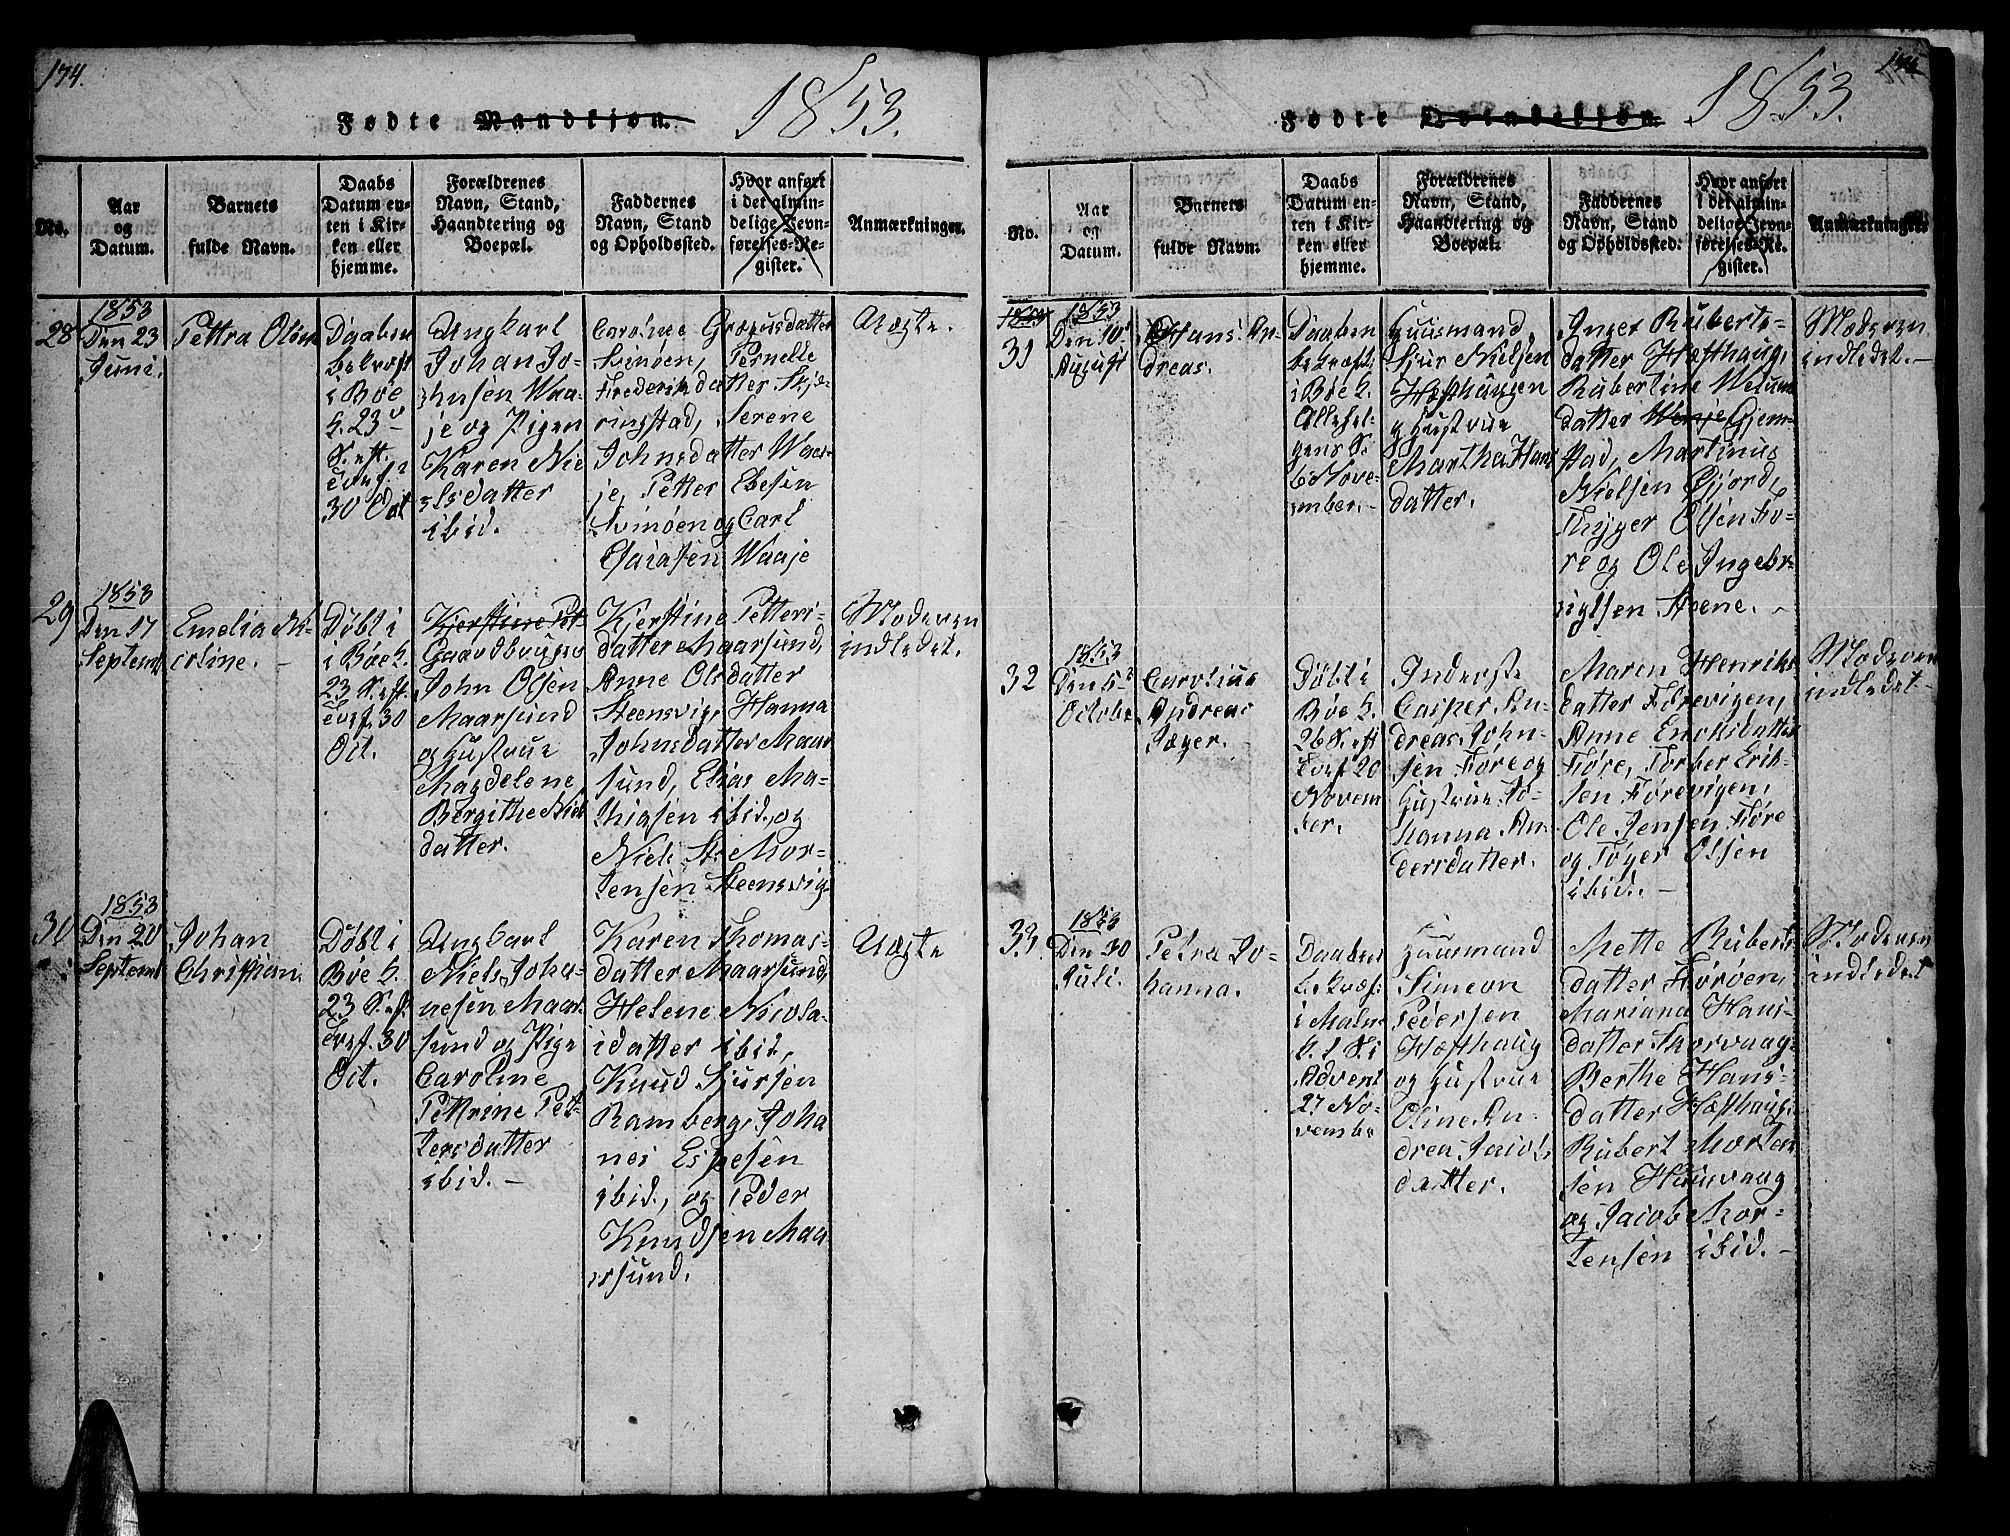 174.
Fødte Mandkjøn.
1853.
No.
Aar
og
Datum.
Barnets
fulde Navn.
Daabs
Datum en-
ten i Kir-
ken eller
hjemme.
Forældrenes
Navn, Stand,
Haandtering og
Boepæl.
Faddernes
Navn, Stand
og Opholdssted.
Hvor anført
i det almin-
delige Jevn-
førelses-Re-
gister.
Anmærkninger.
28
1853
Den 23
Juni.
Pettra Oline
Daaben
bekræft
i Bøe
K. 23
S. eft.
30 Oct
Ungkarl
Johan Jo-
hnsen Waa-
je og Pigen
Karen Nie
lsdatter
ibid.
Caroline Grægusdatter
Svinøen, Pernelle
Frederiksdatter Skjæ-
ringstad, Serene
Johnsdatter Waa-
je, Petter Ebesen
Svinøen og Carl
Esaiasen Waaje
Uægte.
29
1853
Den 17
Septemb
Emelia Ni-
coline.
Døbt i
i Bøe K.
23 S. eft.
30
Oct.
Kjerstine Pet
Gaardbruger
John Olsen
Maarsund
og Hustrue
Magdelene
Bergithe Niels
datter.
Kjerstine Petters-
datter Maarsund,
Anne Olsdatter
Steensvig, Hanna
Johnsdatter Maar
sund, Elias Ma-
thiasen ibid., og
Niels St. Mor-
tensen Steensvig
Moderen
indledet.
30
1853
Den 20
Septemb
Johan
Christian.
Døbt i
Bøe K.
23 S. eft.
30
Oct.
Ungkarl
Niels Joha-
nesen Maar
sund og Pige
Caroline
Pettrine Pet-
tersdatter
ibid.
Karen Thomas-
datter Maarsund,
Helene Nicola-
idatter ibid,
Knud Sjursen
Ramberg, Joha
nes Espesen
ibid., og Peder
Knudsen Maa
rsund.
Uægte
Fødte Qvindekjøn.
1853.
No.
Aar
og
Datum.
Barnets
fulde Navn.
Daabs
Datum en-
ten i Kir-
ken eller
hjemme.
Forældrenes
Navn, Stand,
Haandtering og
Boepæl.
Faddernes
Navn, Stand
og Opholdssted.
Hvor anført
i det almin-
delige Jevn-
førelses-Re-
gister.
Anmærkninger.
31
1853
Den 10
August
Hans An-
dreas.
Daaben
bekræft
i Bøe K.
Allehel-
gens S.
6 Nove-
mber.
Huusmand
Sjur Nielsen
Hæsthaugen
og Hustrue
Martha Hans
datter.
Inger Ruberts-
datter Hæsthaug,
Rubertine
datter Winje Gjem-
stad, Martinus
Nielsen Øjord,
Thyger Olsen Fø-
re og Ole Ingebr-
igtsen Steene.
Moderen
indledet.
32
1853
Den 5
October
Carolius
Andreas
Jæger.
Døbt i
Bøe K.
26 S. eft
20
Novem
ber.
Inderste
Casper An-
dreas John-
sen Føre og
Hustrue Jo-
hanna An-
dersdatter.
Maren Henriks
datter Førevigen,
Anne Enoksdatter
Føre, Torber Erik-
sen Førevigen,
Ole Jensen Føre
og Tøger Olsen
ibid.
Moderen
indledet
33.
1853
Den 30
Juli.
Petra Jo-
hanna.
Daaben
bekræf.
i Maln
K. 1 S. i
Advent
27 No-
vembe
Huusmand
Simeon
Pedersen
Hæsthaug
og Hustrue
Oline An-
drea Jacobs
datter.
Mette Ruberts
datter Førøen,
Mariana Hans-
datter Skorvaag
Berthe Hans-
datter Hæsthaug,
Rubert Morten
sen Huusvaag
og Jacob Mor-
tensen ibid.
Moderen
indledet